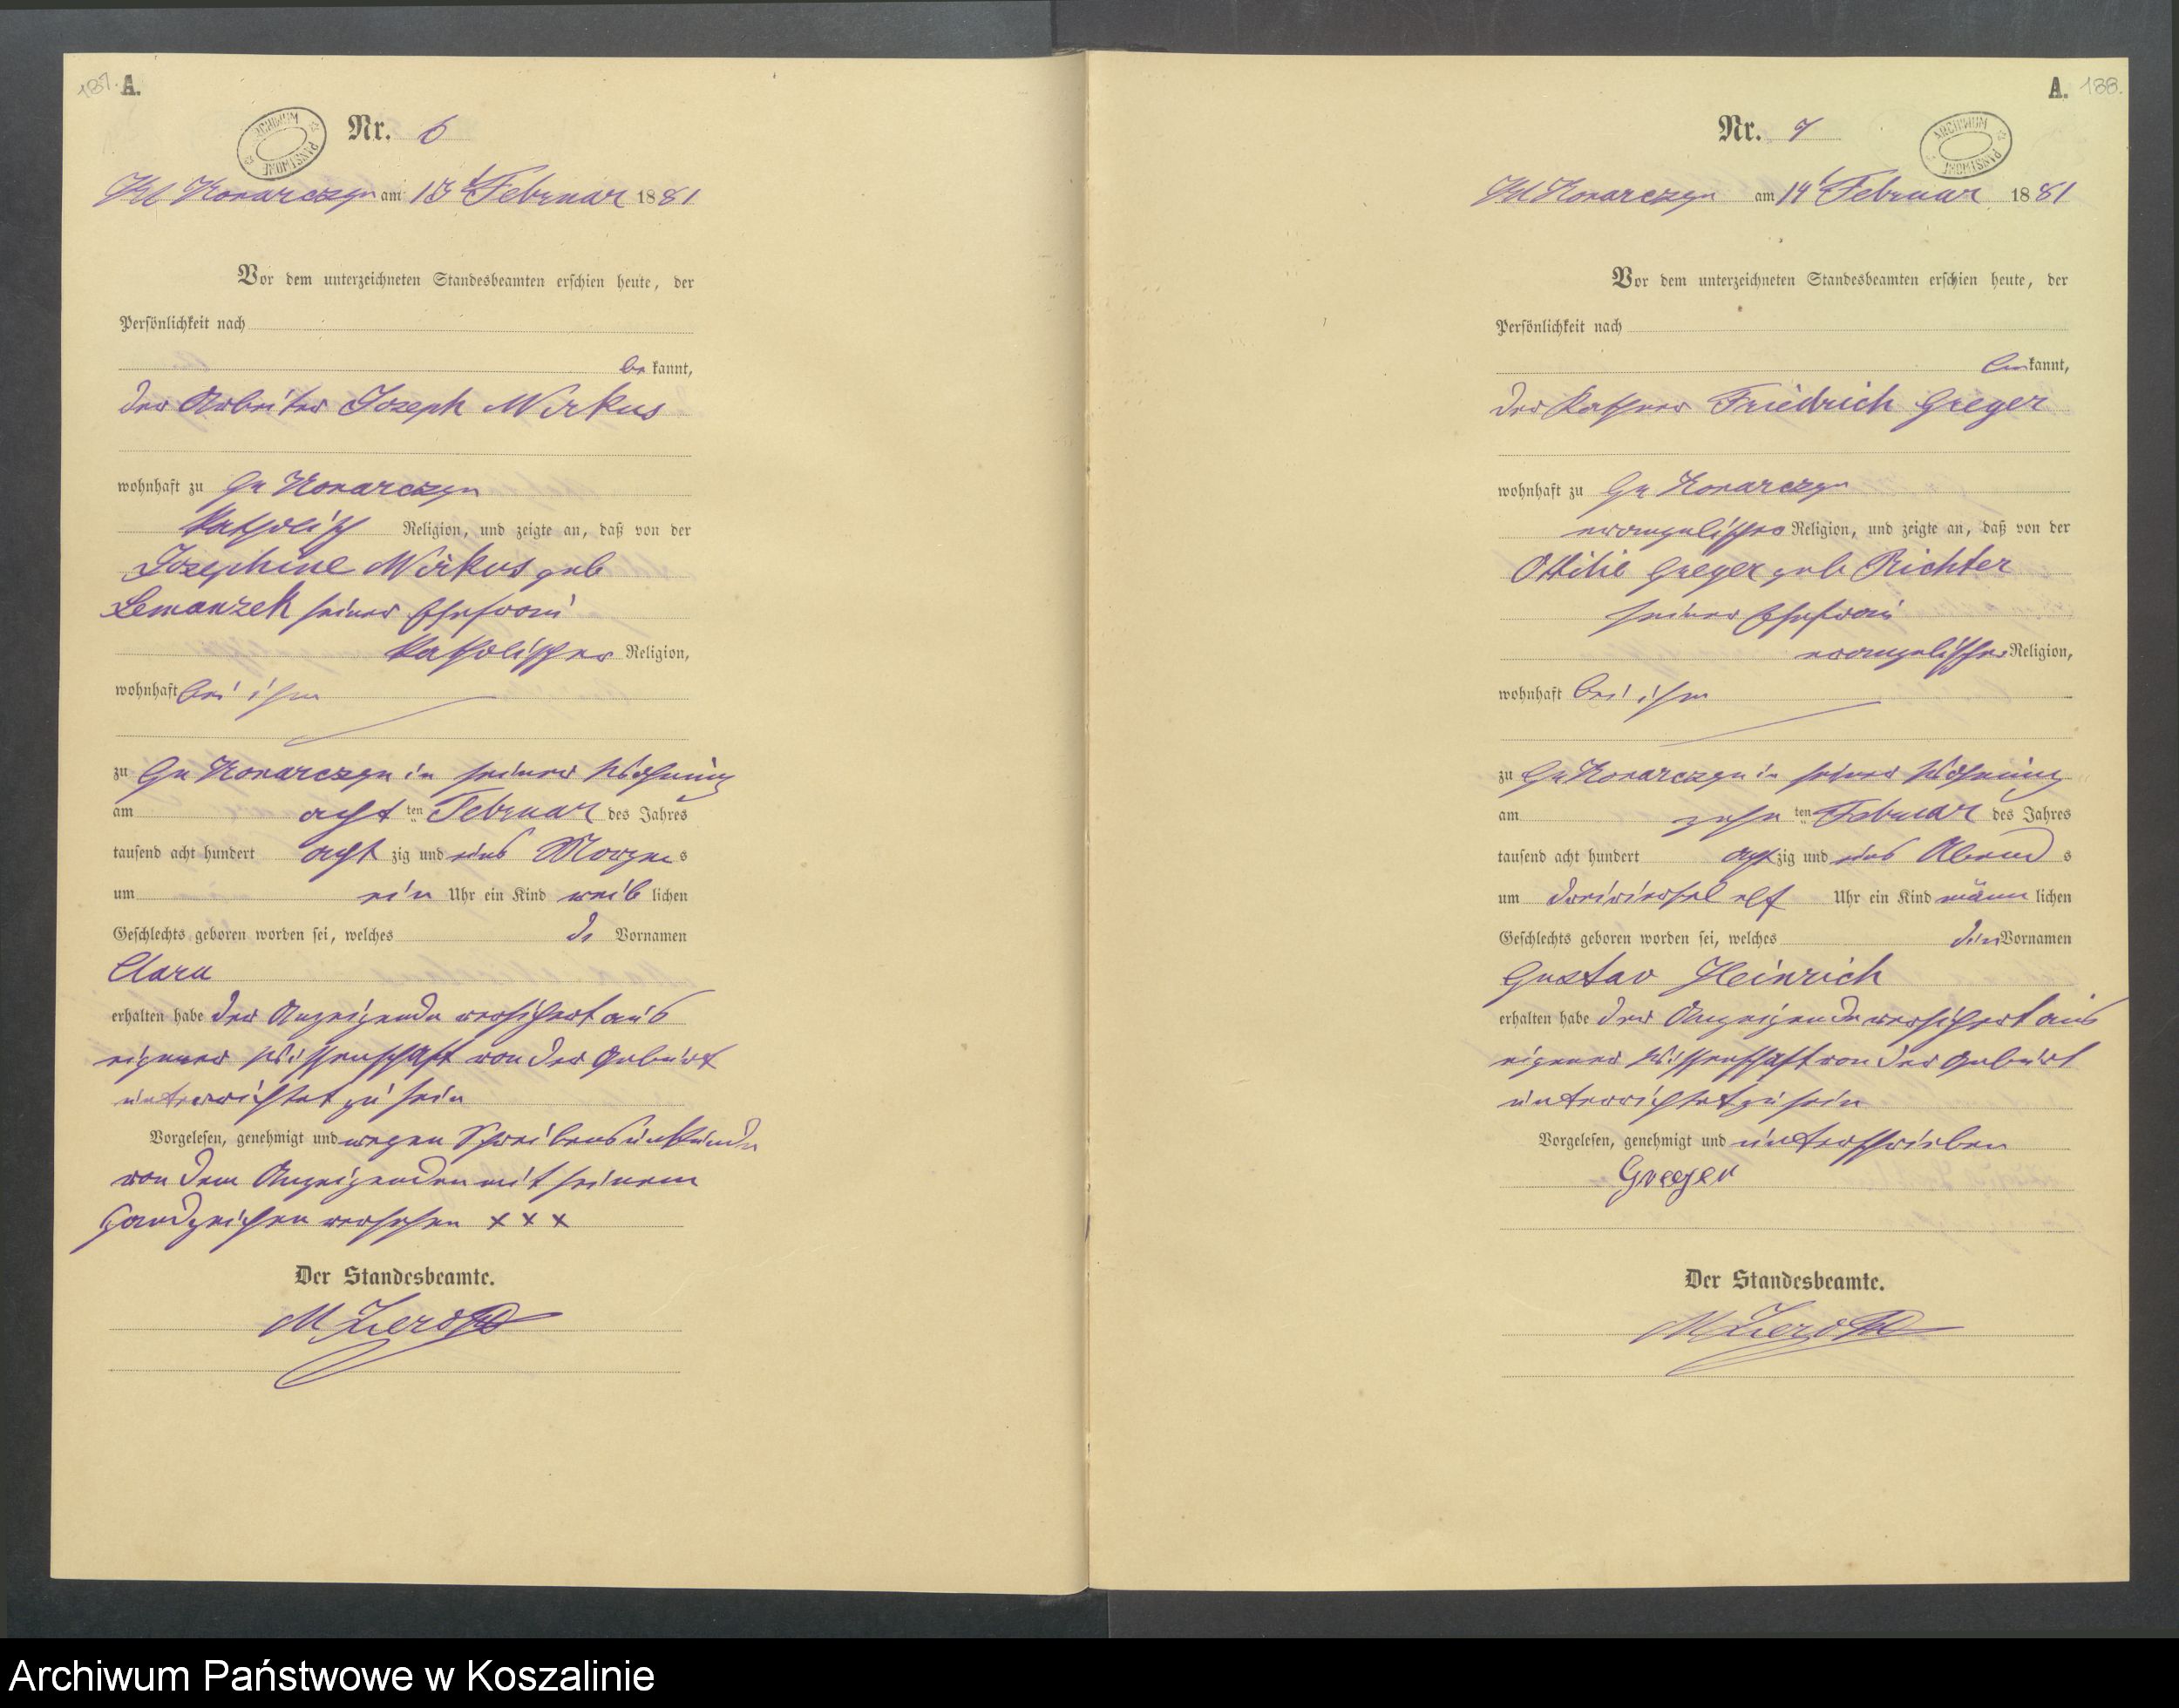 187. A.
Nr. 6
ARCHIWUM PAŃSTWOWE
Kl Konarczyn am 13 t Februar 1881
Vor dem unterzeichneten Standesbeamten erschien heute, der
Persönlichkeit nach
be kannt,
der Arbeiter Joseph Wirkus
wohnhaft zu Gr Konarczyn
katholisch Religion, und zeigte an, daß von der
Josephine Wirkus geb
Lemanzek seiner Ehefrau
katholischer Religion,
wohnhaft bei ihm
zu Gr Konarczyn in seiner Wohnung
am acht ten Februar des Jahres
tausend acht hundert acht zig und eins Morgen s
um ein Uhr ein Kind weib lichen
Geschlechts geboren worden sei, welches Vornamen
Clara
erhalten habe der Anzeigende versichert aus
eigener Wissenschaft von der Geburt
unterrichtet zu sein
Vorgelesen, genehmigt und wegen Schreibensunkunde
von dem Anzeigenden mit seinem
Handzeichen versehen x x x
Der Standesbeamte.
A. 188.
Nr. 7
ARCHIWUM PAŃSTWOWE
Kl Konarczyn am 14 t Februar 1881
Vor dem unterzeichneten Standesbeamten erschien heute, der
Persönlichkeit nach
be kannt,
der Kathner Friedrich Greger
wohnhaft zu Gr Konarczyn
evangelischer Religion, und zeigte an, daß von der
Ottilie Greger geb Richter
seiner Ehefrau
evangelischer Religion,
wohnhaft bei ihm
zu Gr Konarczyn in seiner Wohnung
am zehn ten Februar des Jahres
tausend acht hundert acht zig und eins Abend s
um dreiviertel elf Uhr ein Kind männ lichen
Geschlechts geboren worden sei, welches den Vornamen
Gustav Heinrich
erhalten habe der Anzeigende versichert aus
eigener Wissenschaft von der Geburt
unterrichtet zu sein
Vorgelesen, genehmigt und unterschrieben
Greger
Der Standesbeamte.
Archiwum Państwowe w Koszalinie